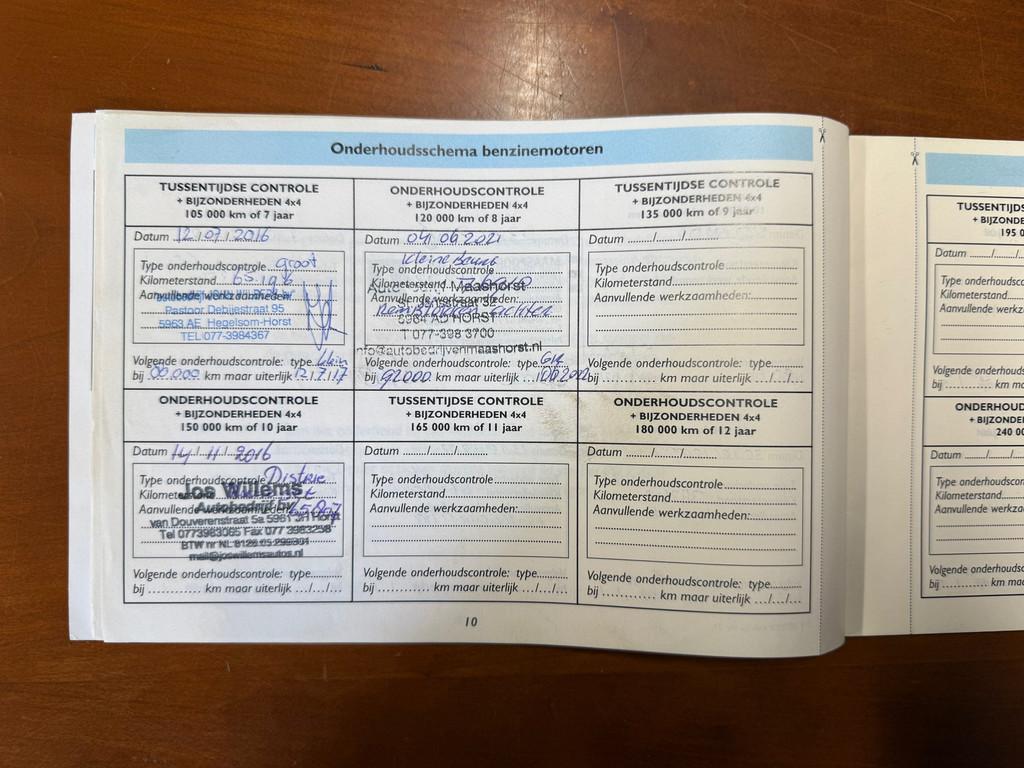 Onderhoudsschema benzinemotoren
TUSSENTIJDSE CONTROLE
+ BIJZONDERHEDEN 4x4
105 000 km of 7 jaar
Datum 12/07/2016
Type onderhoudscontrole groot
Kilometerstand
Aanvullende werkzaamheden:
Pastoor Debijestraat 95
5963 AE Hegelsom-Horst
TEL 077-3984367
Volgende onderhoudscontrole: type klein
bij km maar uiterlijk 12/7/17
ONDERHOUDSCONTROLE
+ BIJZONDERHEDEN 4x4
120 000 km of 8 jaar
Datum 04 06 2021
Kleine Beurt
Type onderhoudscontrole
Kilometerstand
Aanvullende werkzaamheden:
Maashorst
Remblokken
HORST
T 077-398 3700
info@autobedrijvenmaashorst.nl
Volgende onderhoudscontrole: type
bij 92000 km maar uiterlijk
TUSSENTIJDSE CONTROLE
+ BIJZONDERHEDEN 4x4
135 000 km of 9 jaar
Datum ......../....../............
Type onderhoudscontrole
Kilometerstand
Aanvullende werkzaamheden:
Volgende onderhoudscontrole: type
bij ............ km maar uiterlijk .../.../...
ONDERHOUDSCONTROLE
+ BIJZONDERHEDEN 4x4
150 000 km of 10 jaar
Datum 14/11/2016
Type onderhoudscontrole Distrie
Jos Willems
Autobedrijf bv
van Douverenstraat 5a 5961
Tel 0773983065 Fax 077 3983258
BTW nr
mail@joswillemsautos.nl
Volgende onderhoudscontrole: type
bij ............ km maar uiterlijk .../.../...
TUSSENTIJDSE CONTROLE
+ BIJZONDERHEDEN 4x4
165 000 km of 11 jaar
Datum ......../....../............
Type onderhoudscontrole
Kilometerstand
Aanvullende werkzaamheden:
Volgende onderhoudscontrole: type
bij ............ km maar uiterlijk .../.../...
ONDERHOUDSCONTROLE
+ BIJZONDERHEDEN 4x4
180 000 km of 12 jaar
Datum ......../....../............
Type onderhoudscontrole
Kilometerstand
Aanvullende werkzaamheden:
Volgende onderhoudscontrole: type
bij ............ km maar uiterlijk .../.../...
10
TUSSENTIJDS
+ BIJZONDE
195 0
Datum
Type onderhoudsc
Kilometerstand
Aanvullende werkz
Volgende onderho
bij km ma
ONDERHOUD
+ BIJZONDE
240 00
Datum
Type onderhoudsc
Kilometerstand
Aanvullende werkz
Volgende onderho
bij km ma